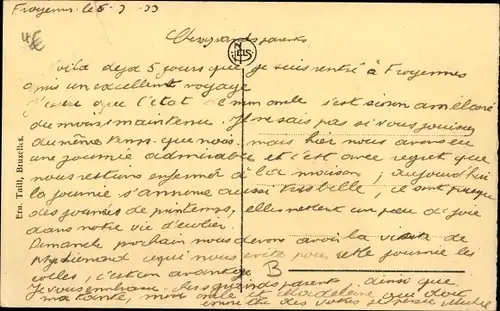 Froyennes le 5-3-33
Chers grands parents
Voilà déjà 5 jours que je suis rentré à Froyennes
après un excellent voyage
que l'état de mon oncle s'est sinon amélioré
du moins maintenu. Je ne sais pas si vous jouissez
du même temps que nous mais hier nous avons eu
une journée admirable et c'est avec regret que
nous restions enfermé à la maison; aujourd'hui
la journée s'annonce aussi très belle, il sont presque
des journées de printemps, elles mettent un peu de joie
dans notre vie d'écolier.
Dimanche prochain nous devons avoir la visite de
ce qui nous évite pour cette journée les
colles, c'est un avantage
Je vous embrasse chers grands parents ainsi que
ma tante, mon oncle et Madeleine qui doit
être des votres
Ern. Thill, Bruxelles.
NELS
B
4€